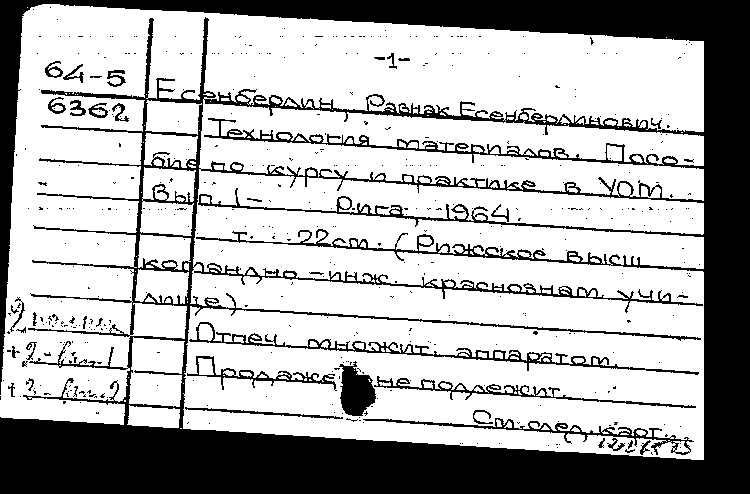 -1-
64-5
6362
Есенберлин, Равнак Есенберлинович.
Технология материалов. Посо-
бие по курсу и практике в УОМ.
Вып. 1- Рига, 1964.
т. 22см. (Рижское высш
командно-инж. краснознам. учи-
лище).
Отпеч. множит. аппаратом.
Продаже не подлежит.
См. след. карт.
+ 2 -
+ 3 -